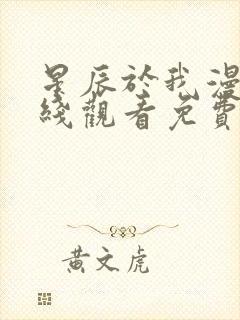 星辰於我漫
綫觀看免費
黄文虎